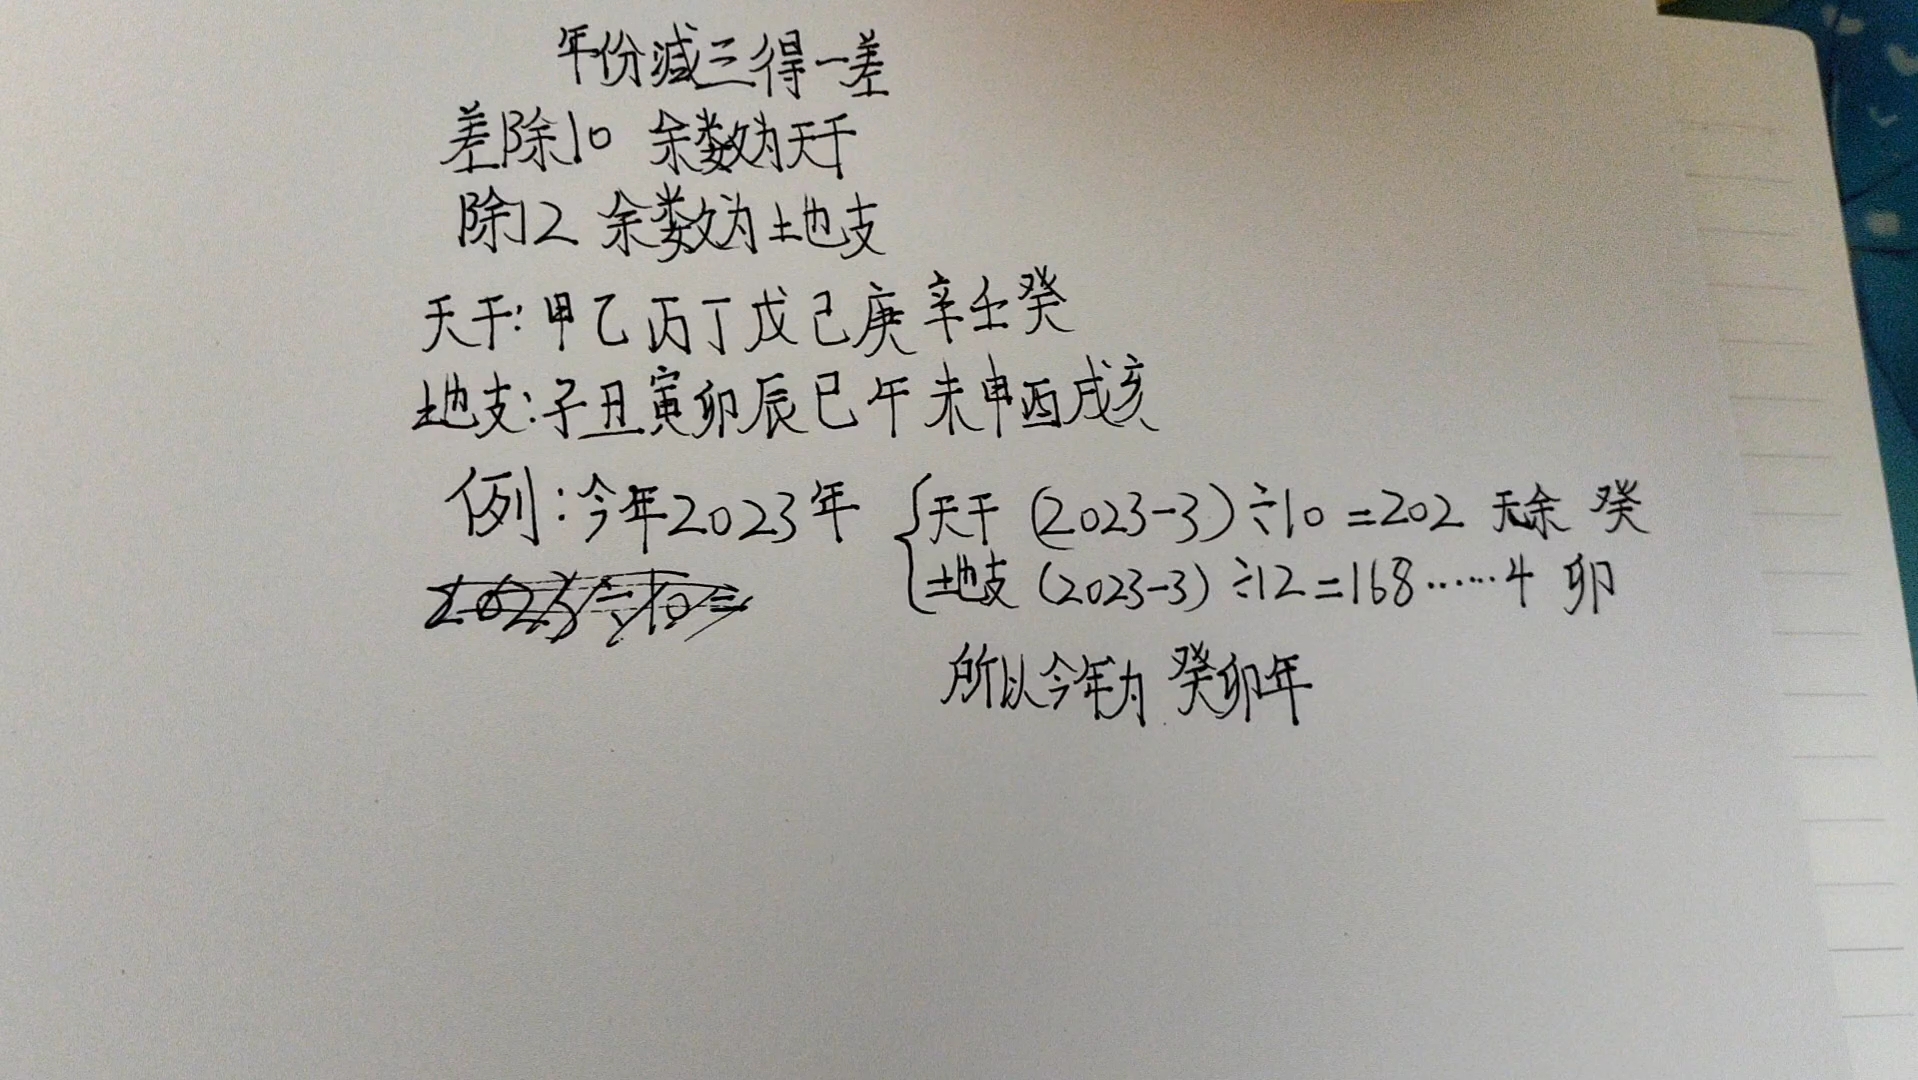 年份减三得一差
差除10 余数为天干
除12 余数为地支
天干:甲乙丙丁戊己庚辛壬癸
地支:子丑寅卯辰巳午未申酉戌亥
例:今年2023年
天干 (2023-3)÷10=202 无余 癸
地支 (2023-3)÷12=168……4 卯
2023÷10=
所以今年为 癸卯年